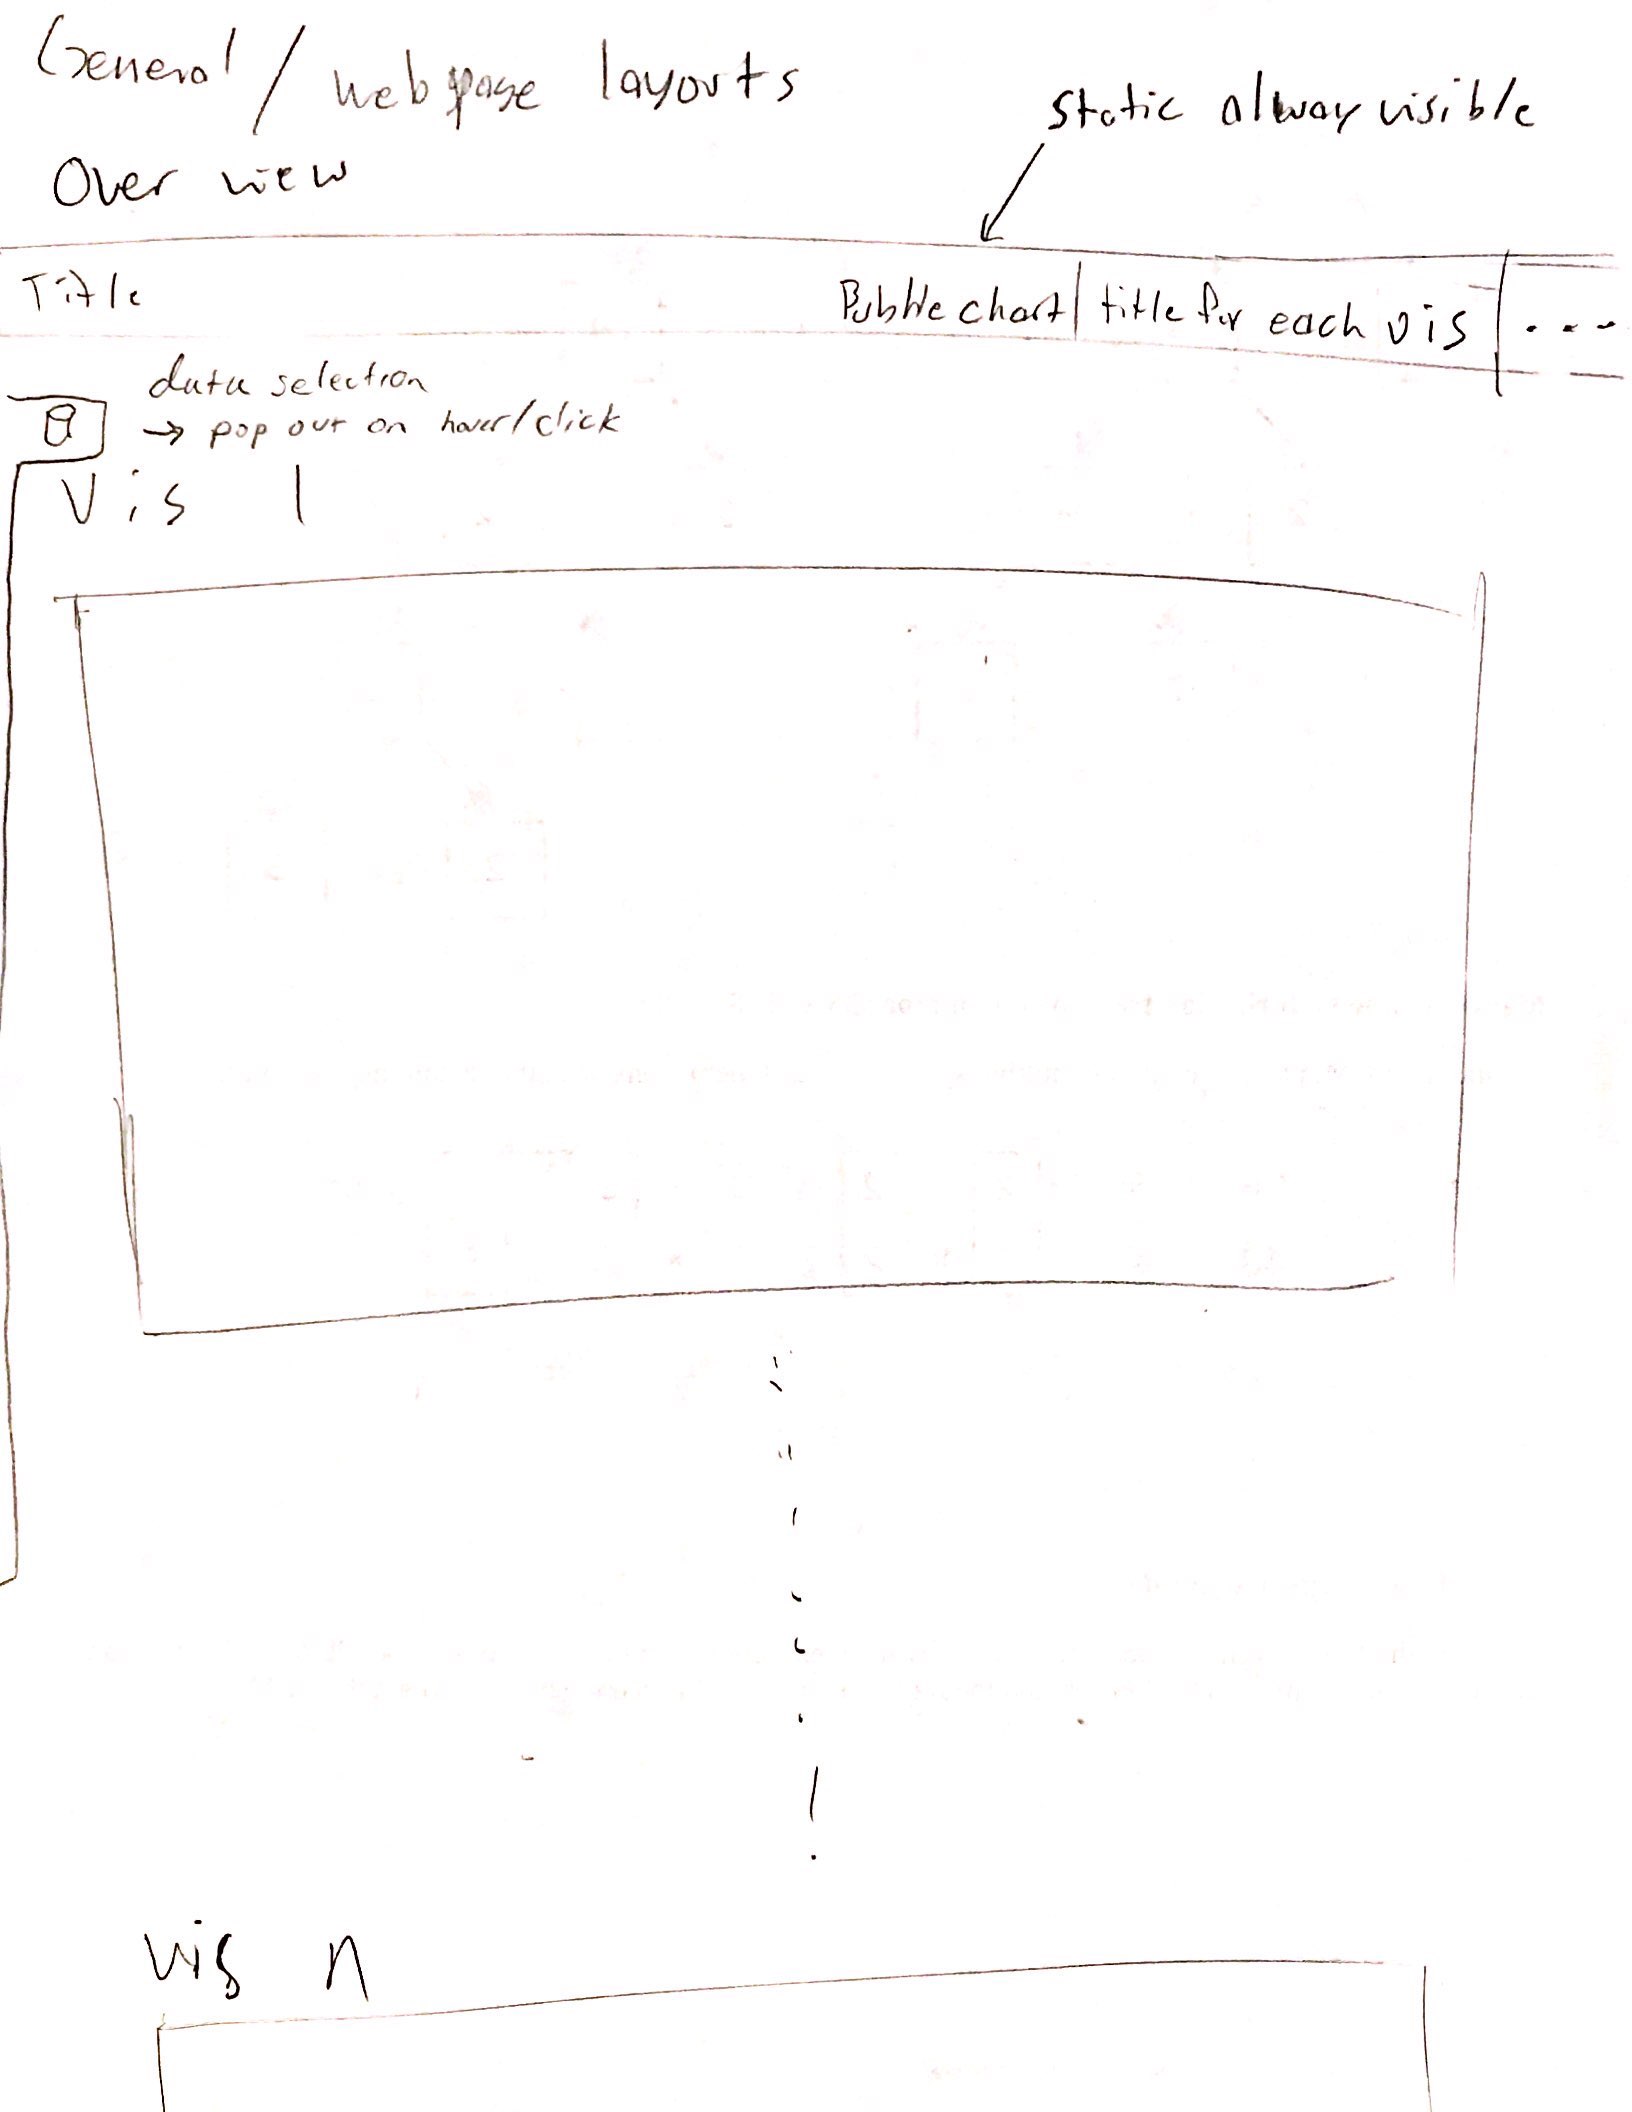 General / web page layouts
static alway visible
Over view
Title
Bubble chart | title for each vis | ...
data selection
→ pop out on hover/click
Vis 1
vis n